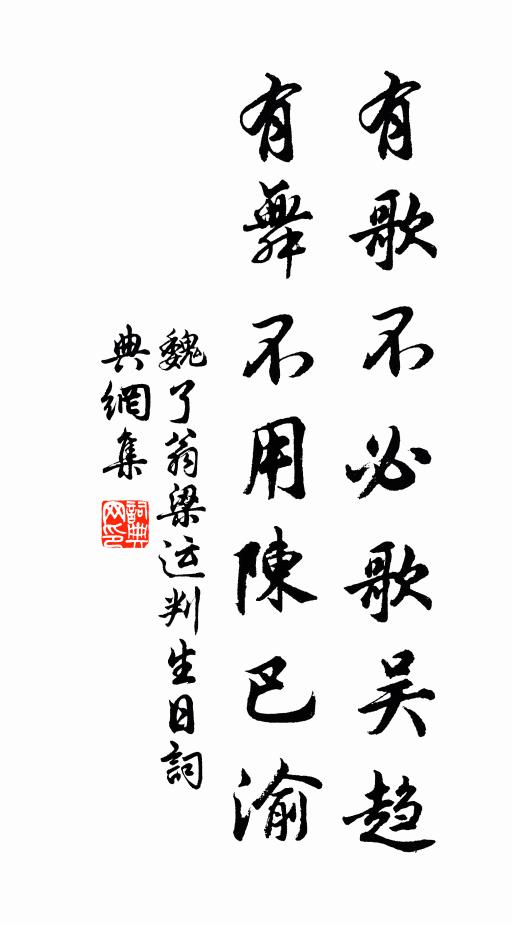 有歌不必歌吴趋
有舞不用陳巴渝
魏了翁梁运判生日詞
典網集
詞典网印